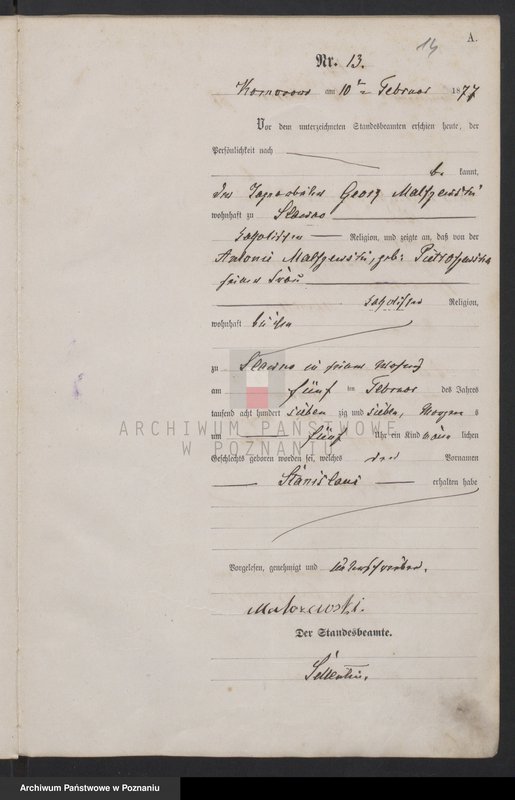 14
A.
Nr. 13.
am 10 ten Februar 1877
Vor dem unterzeichneten Standesbeamten erschien heute, der
Persönlichkeit nach
be kannt,
der Georg
wohnhaft zu
katholischer Religion, und zeigte an, daß von der
Antonie geb:
seiner Frau
katholischer Religion,
wohnhaft bei ihm
zu in seiner Wohnung
am fünf ten Februar des Jahres
tausend acht hundert sieben zig und sieben, Morgen s
um fünf Uhr ein Kind männ lichen
Geschlechts geboren worden sei, welches den Vornamen
Stanislaus erhalten habe
Vorgelesen, genehmigt und unterschrieben.
Der Standesbeamte.
ARCHIWUM PAŃSTWOWE
W POZNANIU
Archiwum Państwowe w Poznaniu